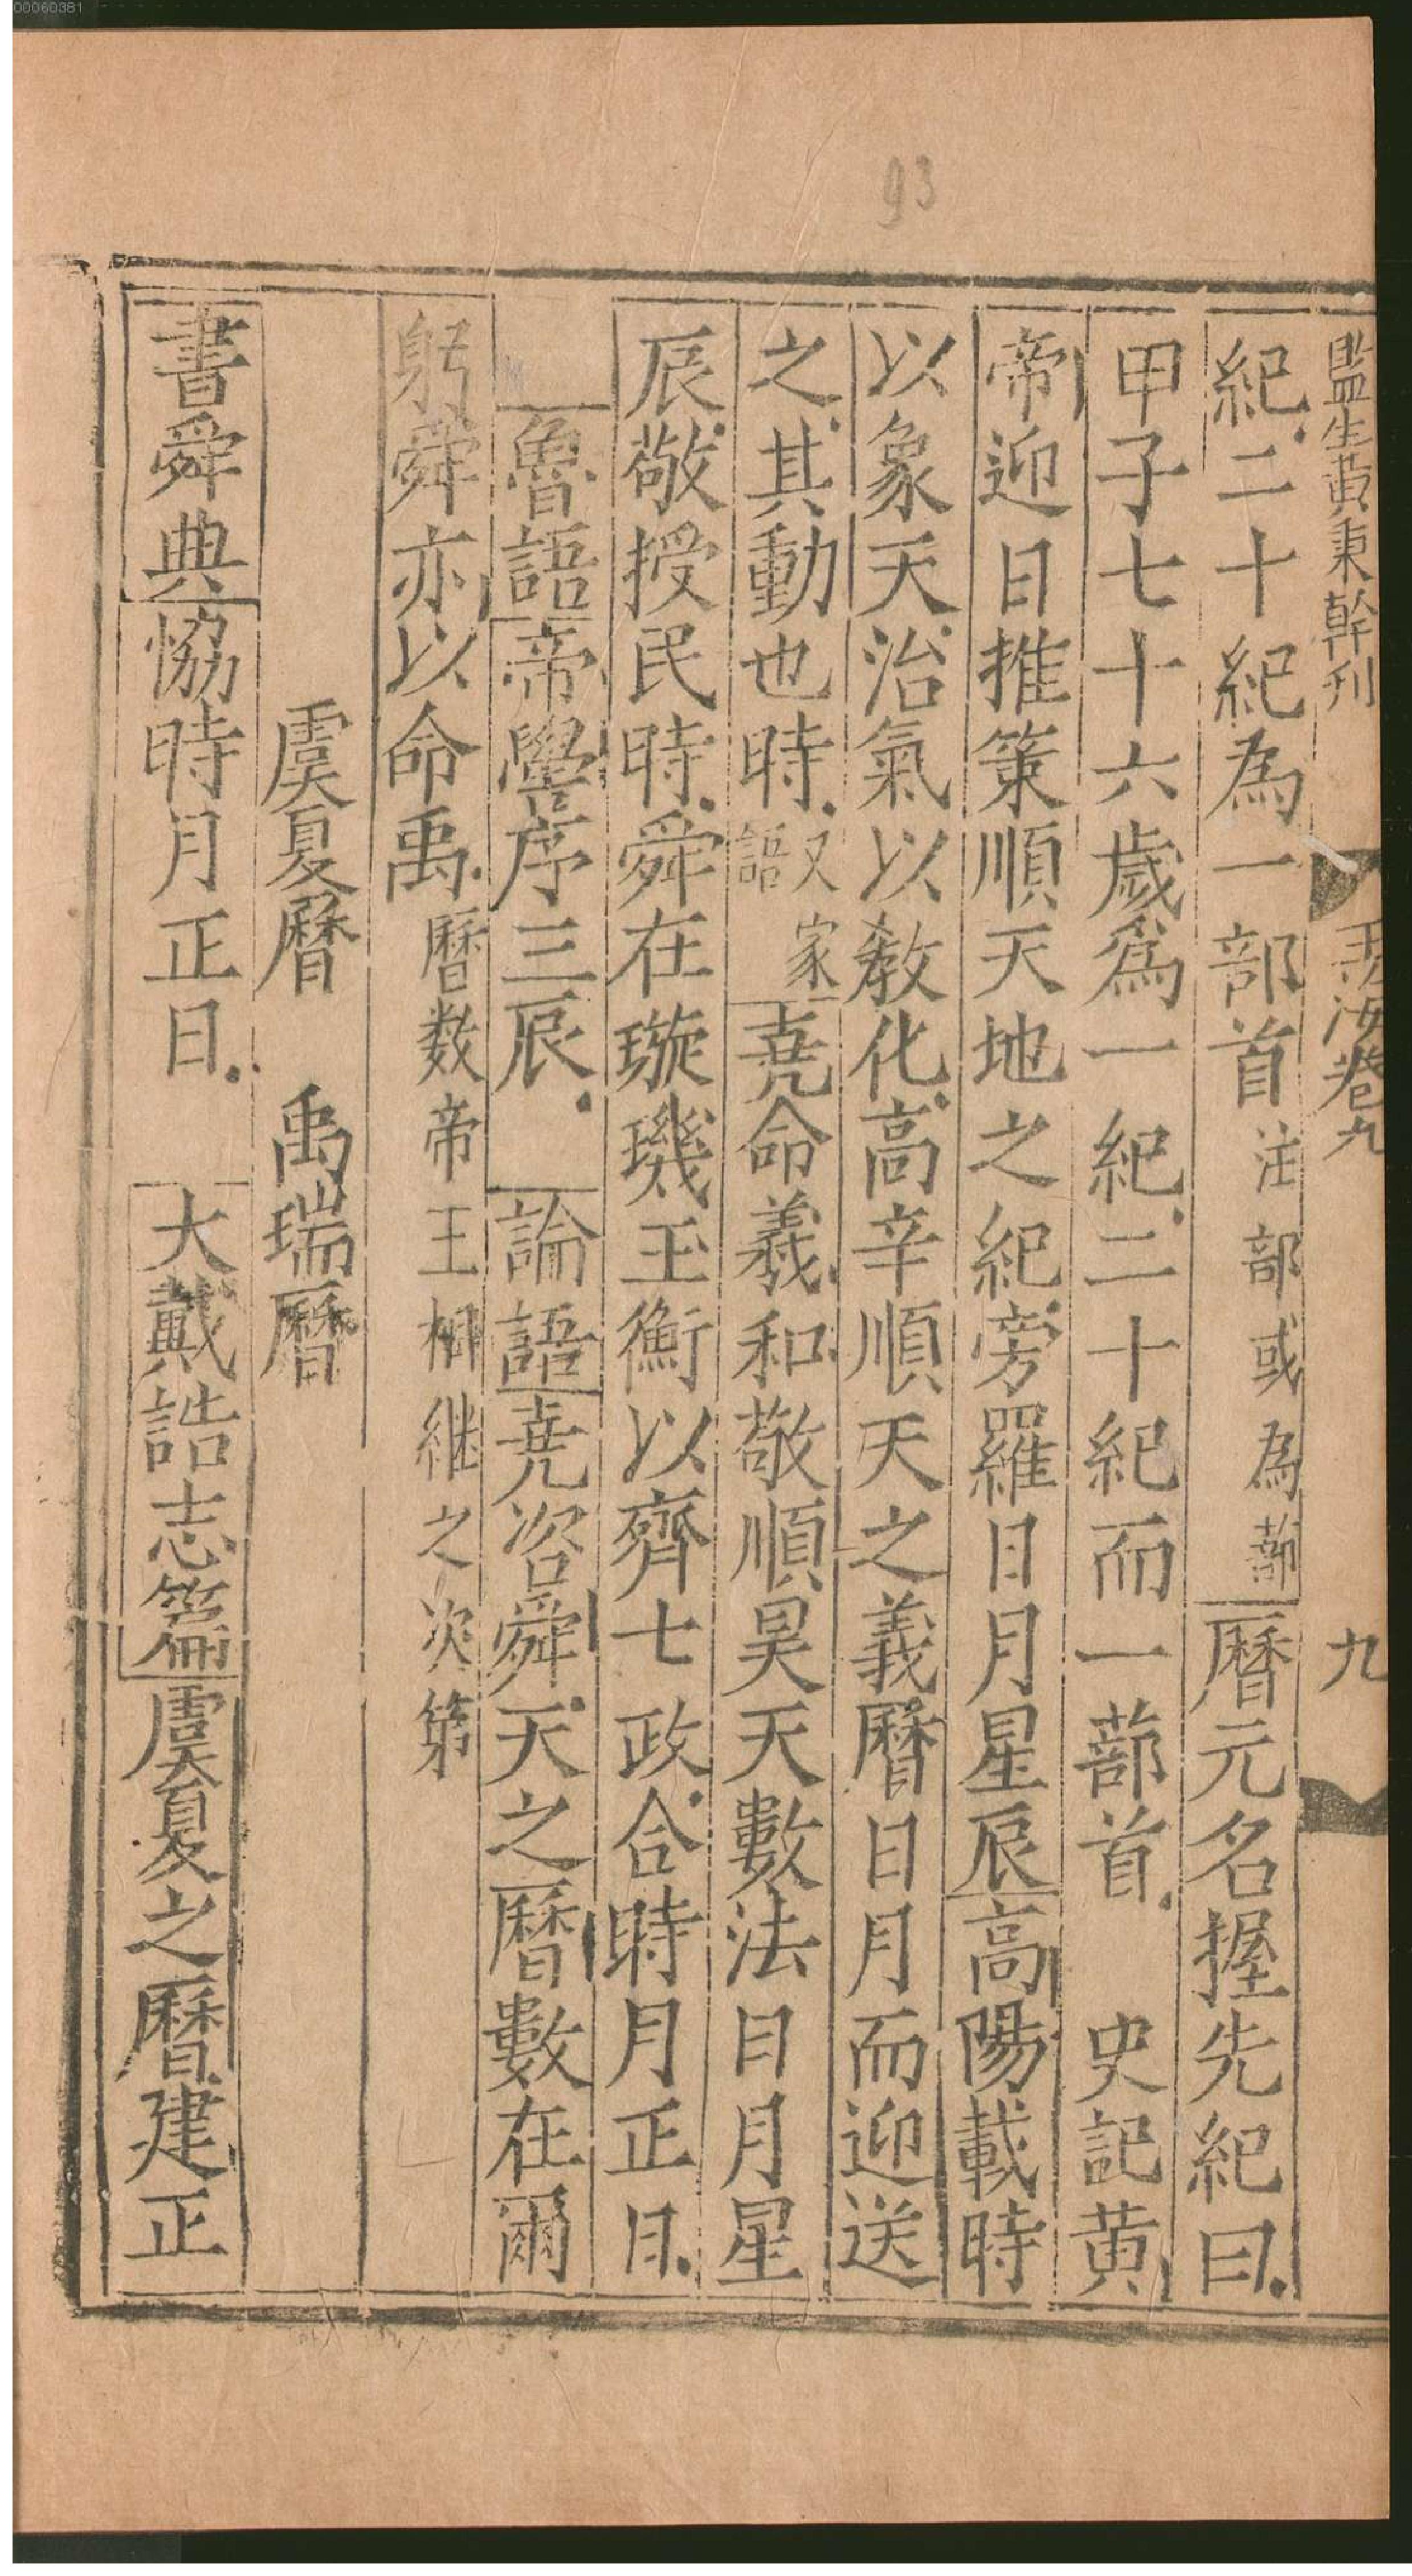 00060381
93
監生黄秉幹刊
玉海卷九
九
紀二十紀為一部首注部或為蔀曆元名握先紀曰
甲子七十六歲爲一紀二十紀而一蔀首　史記黄
帝迎日推策順天地之紀旁羅日月星辰高陽載時
以象天治氣以教化高辛順天之義曆日月而迎送
之其動也時又家語堯命羲和敬順昊天數法日月星
辰敬授民時舜在璇璣玉衡以齊七政合時月正日
魯語帝嚳序三辰　論語堯咨舜天之曆數在爾
躬舜亦以命禹曆数帝王相継之次第
虞夏曆　禹瑞曆
書舜典恊時月正日　大戴誥志篇虞夏之曆建正